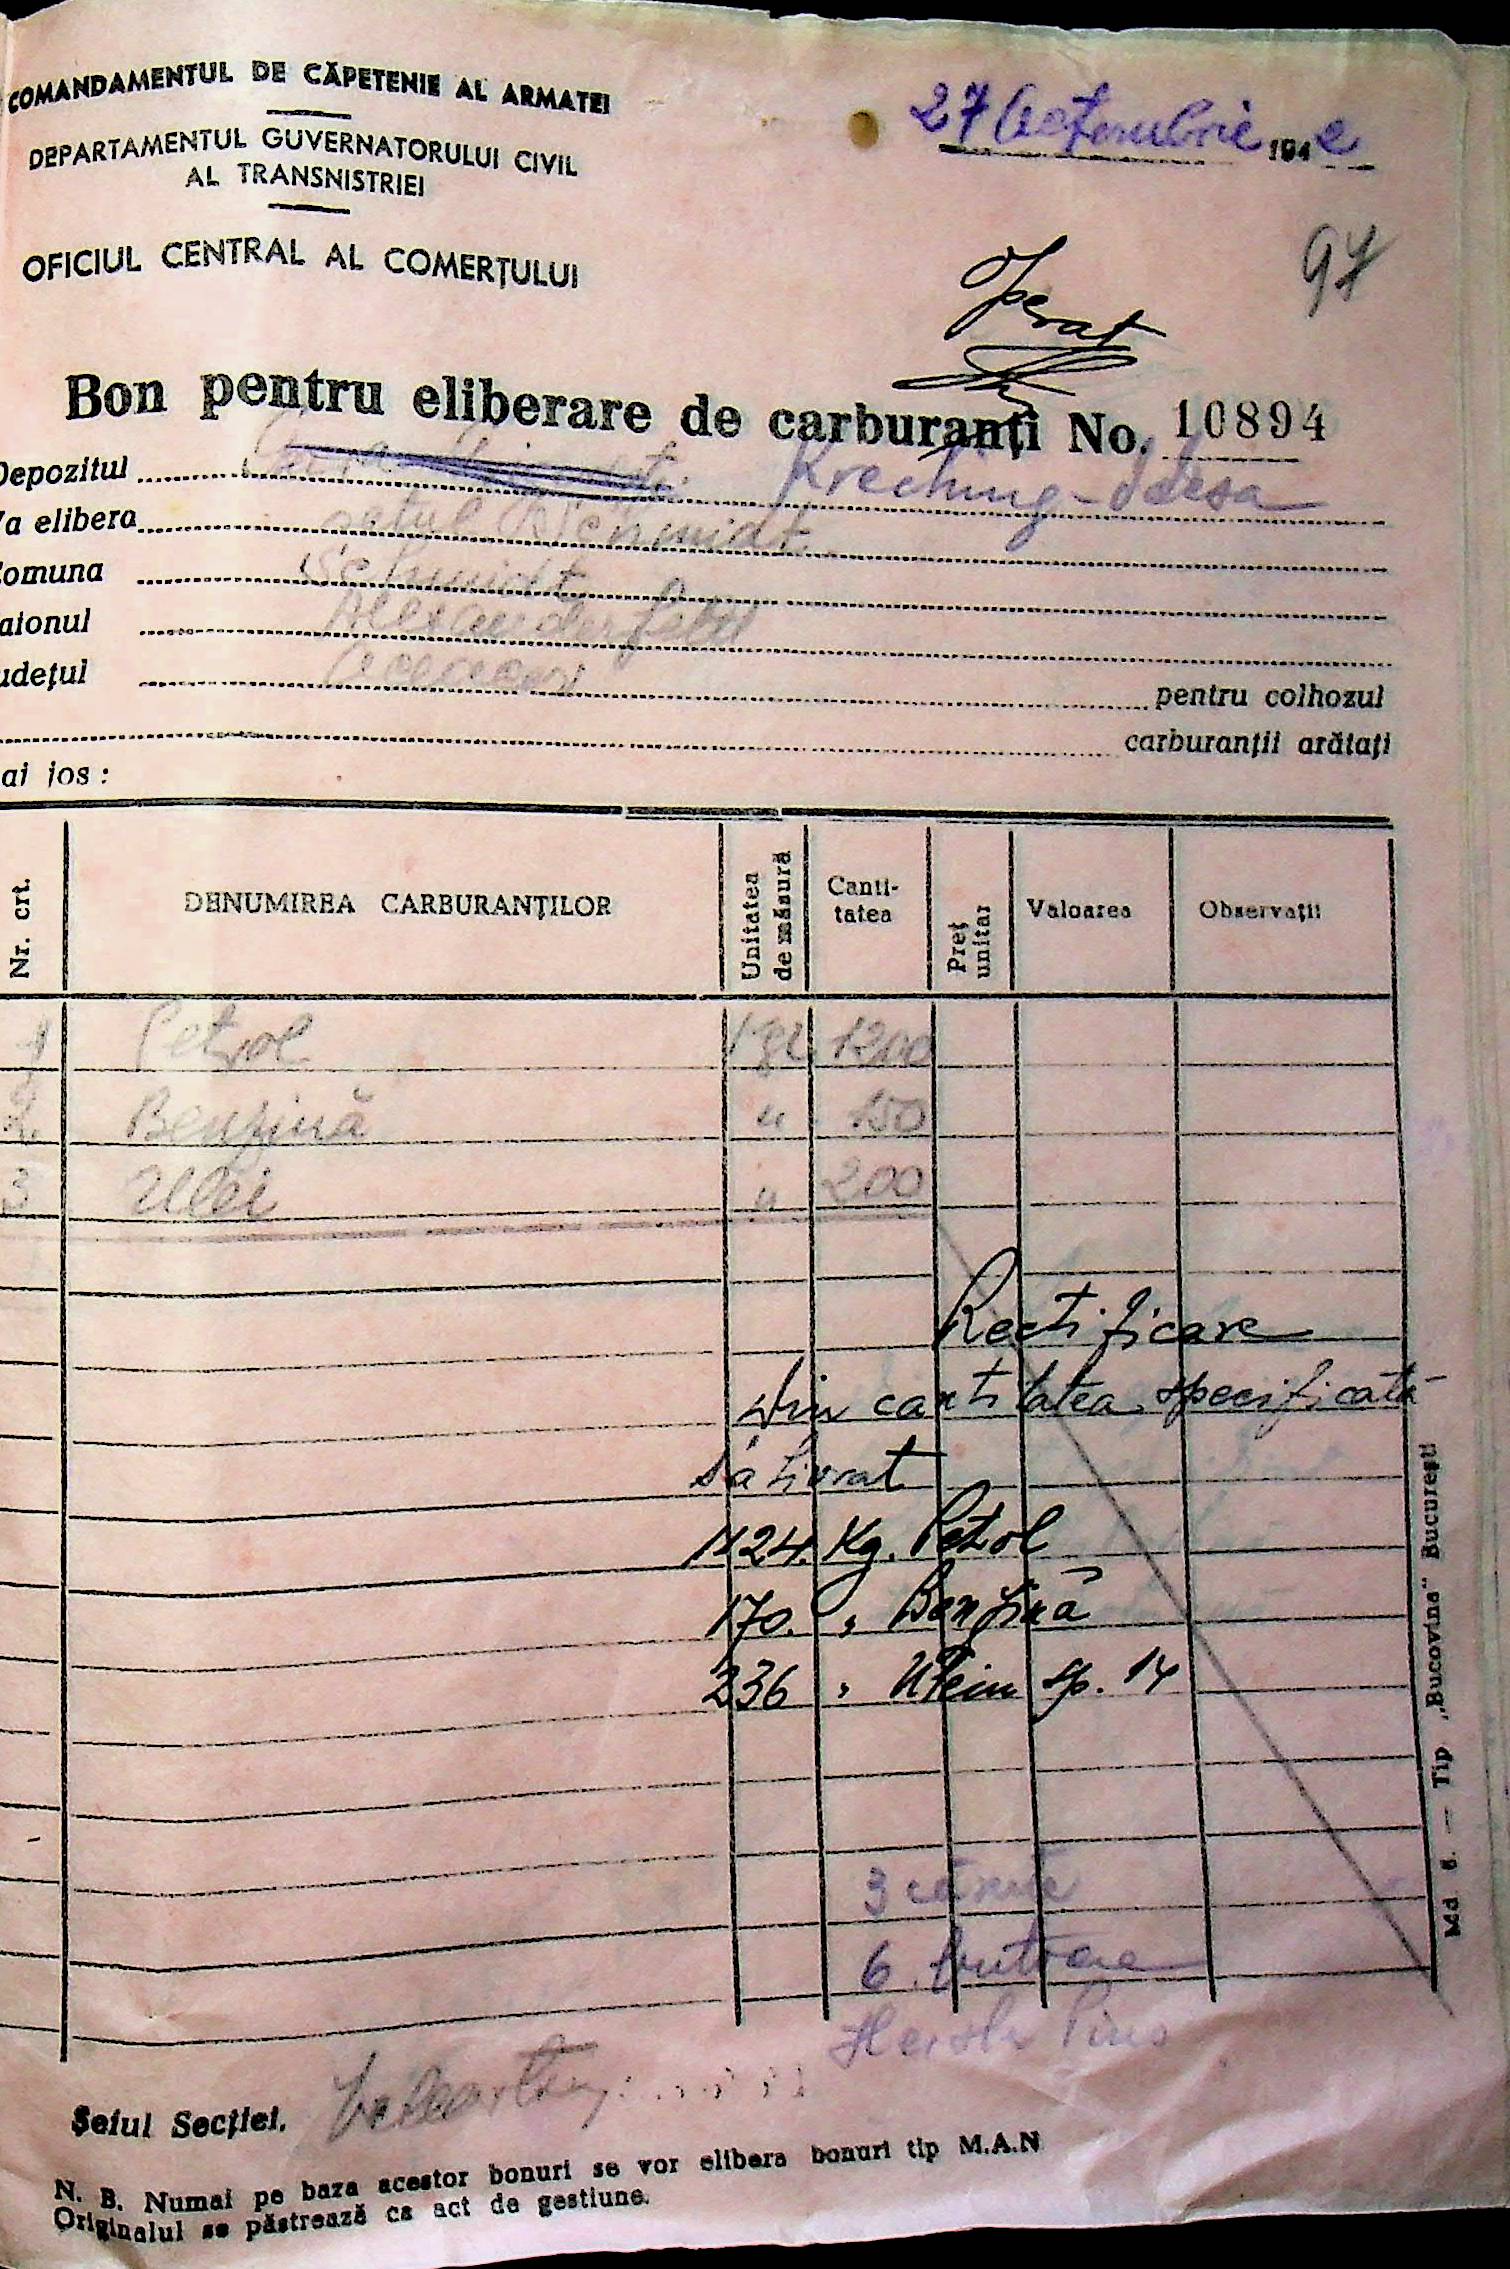 COMANDAMENTUL DE CĂPETENIE AL ARMATEI
DEPARTAMENTUL GUVERNATORULUI CIVIL
AL TRANSNISTRIEI
OFICIUL CENTRAL AL COMERȚULUI
27 Octombrie 1942
97
Operat
Bon pentru eliberare de carburanți No. 10894
Depozitul Kreching-Odesa
Va elibera satul Schmidt
Comuna Schmidt
aionul Alexanderfeld
udețul
pentru colhozul
carburanții arătați
ai jos:
Nr. crt.
DENUMIREA CARBURANȚILOR
Unitatea de măsură
Canti-
tatea
Preț unitar
Valoarea
Observații
1 Petrol kgr 1200
2. Benzină " 150
3 Ulei " 200
Rectificare
Din cantitatea specificată
s'a livrat
1124. Kg. Petrol
170. " Benzină
236 " Uleiu sp. 14
3
6 butoae
Hersh
Șeful Secției,
N. B. Numai pe baza acestor bonuri se vor elibera bonuri tip M.A.N
Originalul se păstrează ca act de gestiune.
Md 6. — Tip „Bucovina" București